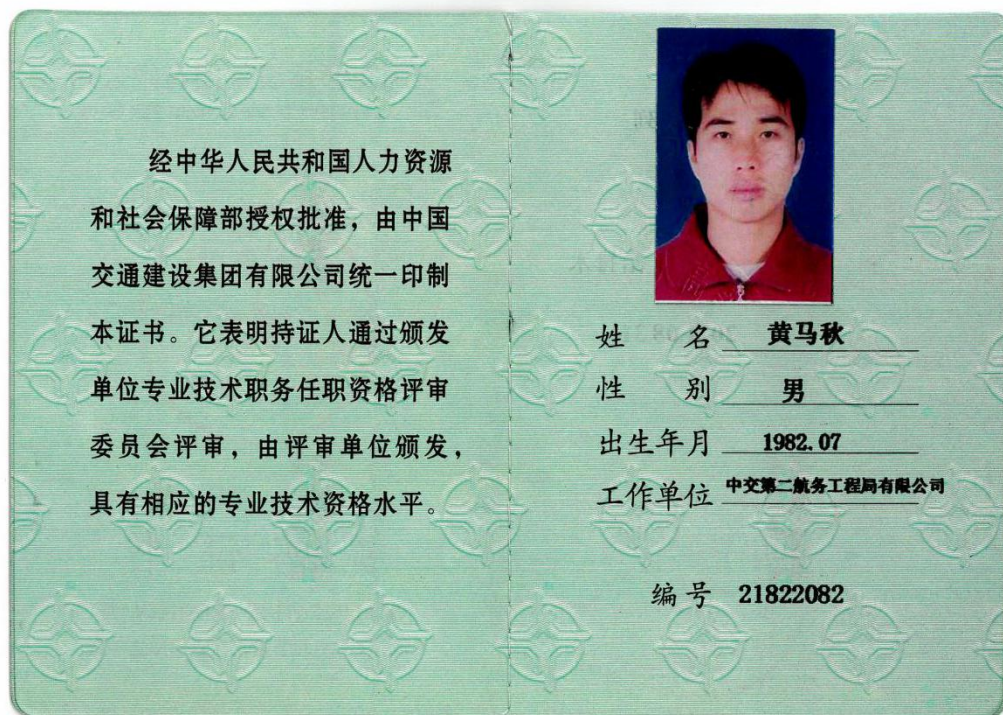 经中华人民共和国人力资源
和社会保障部授权批准，由中国
交通建设集团有限公司统一印制
本证书。它表明持证人通过颁发
单位专业技术职务任职资格评审
委员会评审，由评审单位颁发，
具有相应的专业技术资格水平。
姓 名 黄马秋
性 别 男
出生年月 1982.07
工作单位 中交第二航务工程局有限公司
编号 21822082